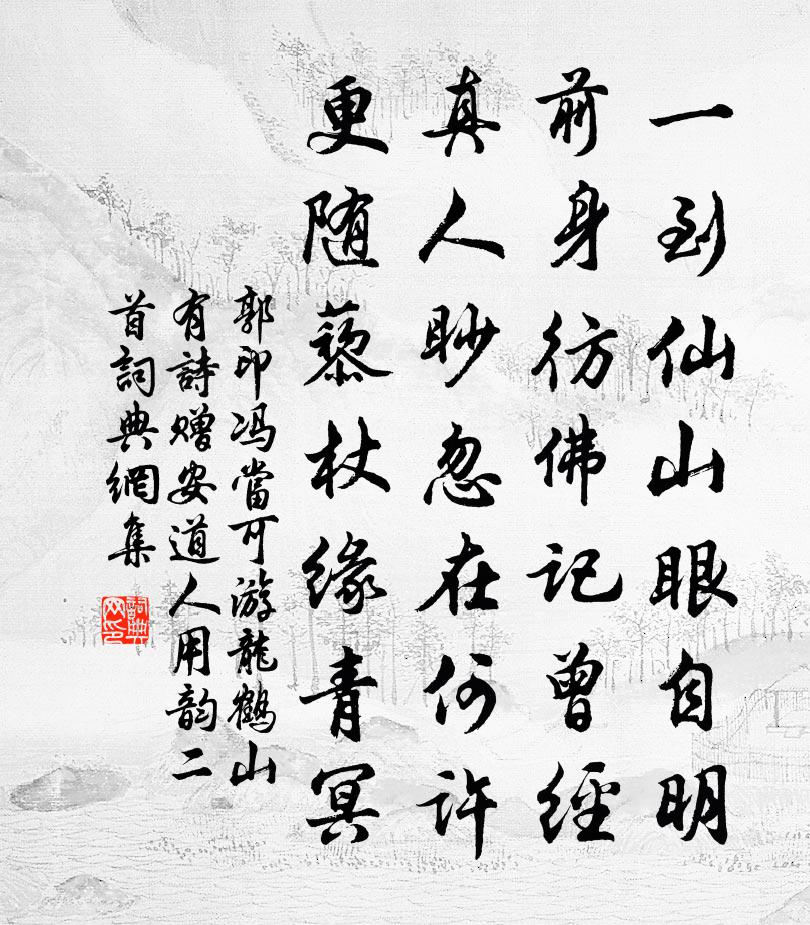 一到仙山眼自明
前身彷佛记曾經
真人眇忽在何许
更随藜杖缘青冥
郭印冯當可游龍鶴山
有詩赠安道人用韵二
首詞典網集
詞典網印